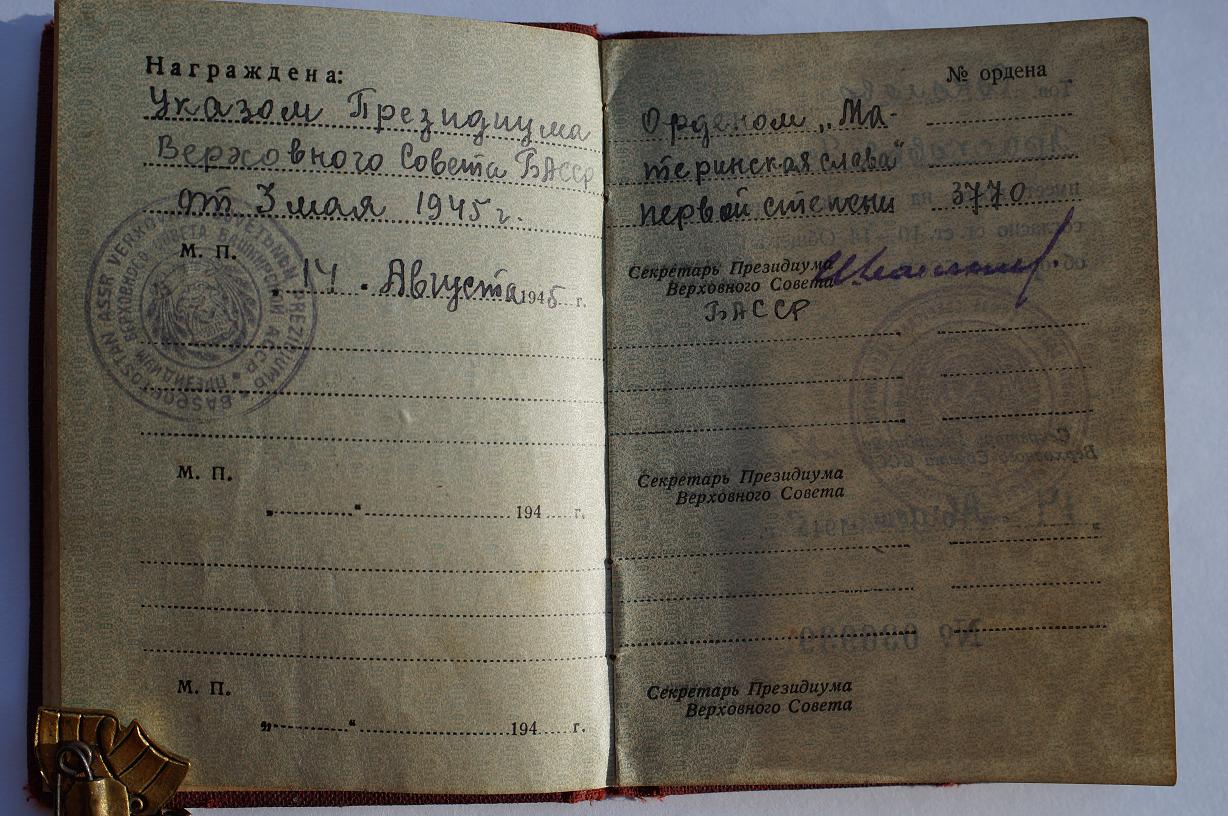 Награждена:
Указом Президиума
Верховного Совета БАССР
от 3 мая 1945 г.
М. П.
14. Августа 1945 г.
М. П.
„ “ 194 г.
М. П.
„ “ 194 г.
№ ордена
Орденом „Ма-
теринская слава“
первой степени 3770
Секретарь Президиума
Верховного Совета
БАССР
Секретарь Президиума
Верховного Совета
Секретарь Президиума
Верховного Совета